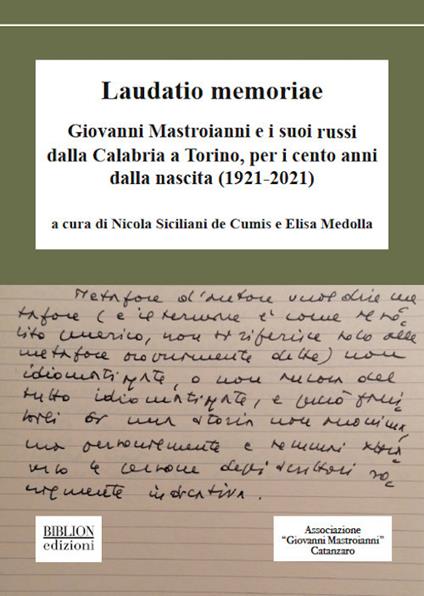 Laudatio memoriae
Giovanni Mastroianni e i suoi russi
dalla Calabria a Torino, per i cento anni
dalla nascita (1921-2021)
a cura di Nicola Siciliani de Cumis e Elisa Medolla
Metafore d'autore vuol dire me
tafore (e il termine è come al so-
lito generico, non si riferisce solo alle
metafore ovviamente dette) non
idiomatizzate, o non ancora del
tutto idiomatizzate, e perciò frui-
bili in una storia non anonima,
ma
e
degli scrittori
indicativa.
BIBLION
edizioni
Associazione
"Giovanni Mastroianni"
Catanzaro